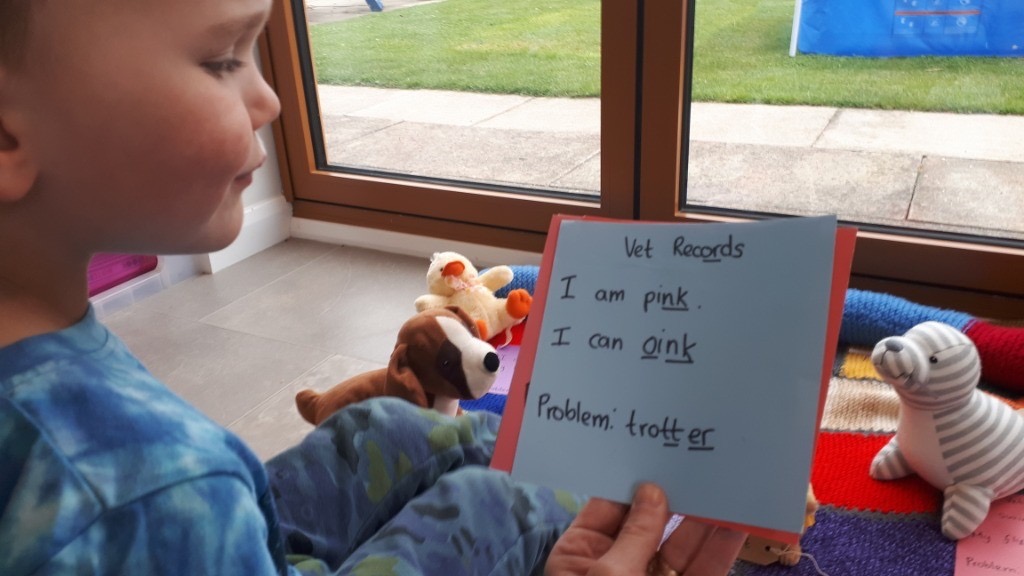 Vet Records
I am pink.
I can oink
Problem: trotter
Problem